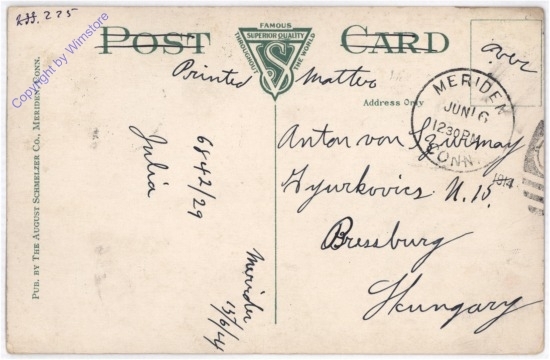 233. 225
Copyright by Wimstore
POST CARD
FAMOUS
SUPERIOR QUALITY
THROUGHOUT THE WORLD
Printed Matter
over
Address Only
MERIDEN
JUN 16
1230PM
CONN.
1914
Anton von
Gyurkovics U. 15.
Pressburg
Hungary
6842/29
Julia
Meriden
15/6/14
PUB. BY THE AUGUST SCHMELZER CO., MERIDEN, CONN.